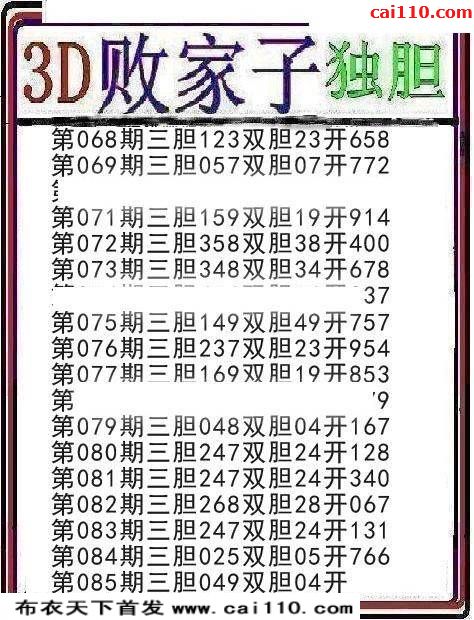 cai110.com
3D败家子独胆
第068期三胆123双胆23开658
第069期三胆057双胆07开772
第071期三胆159双胆19开914
第072期三胆358双胆38开400
第073期三胆348双胆34开678
37
第075期三胆149双胆49开757
第076期三胆237双胆23开954
第077期三胆169双胆19开853
第 9
第079期三胆048双胆04开167
第080期三胆247双胆24开128
第081期三胆247双胆24开340
第082期三胆268双胆28开067
第083期三胆247双胆24开131
第084期三胆025双胆05开766
第085期三胆049双胆04开
布衣天下首发 www.cai110.com